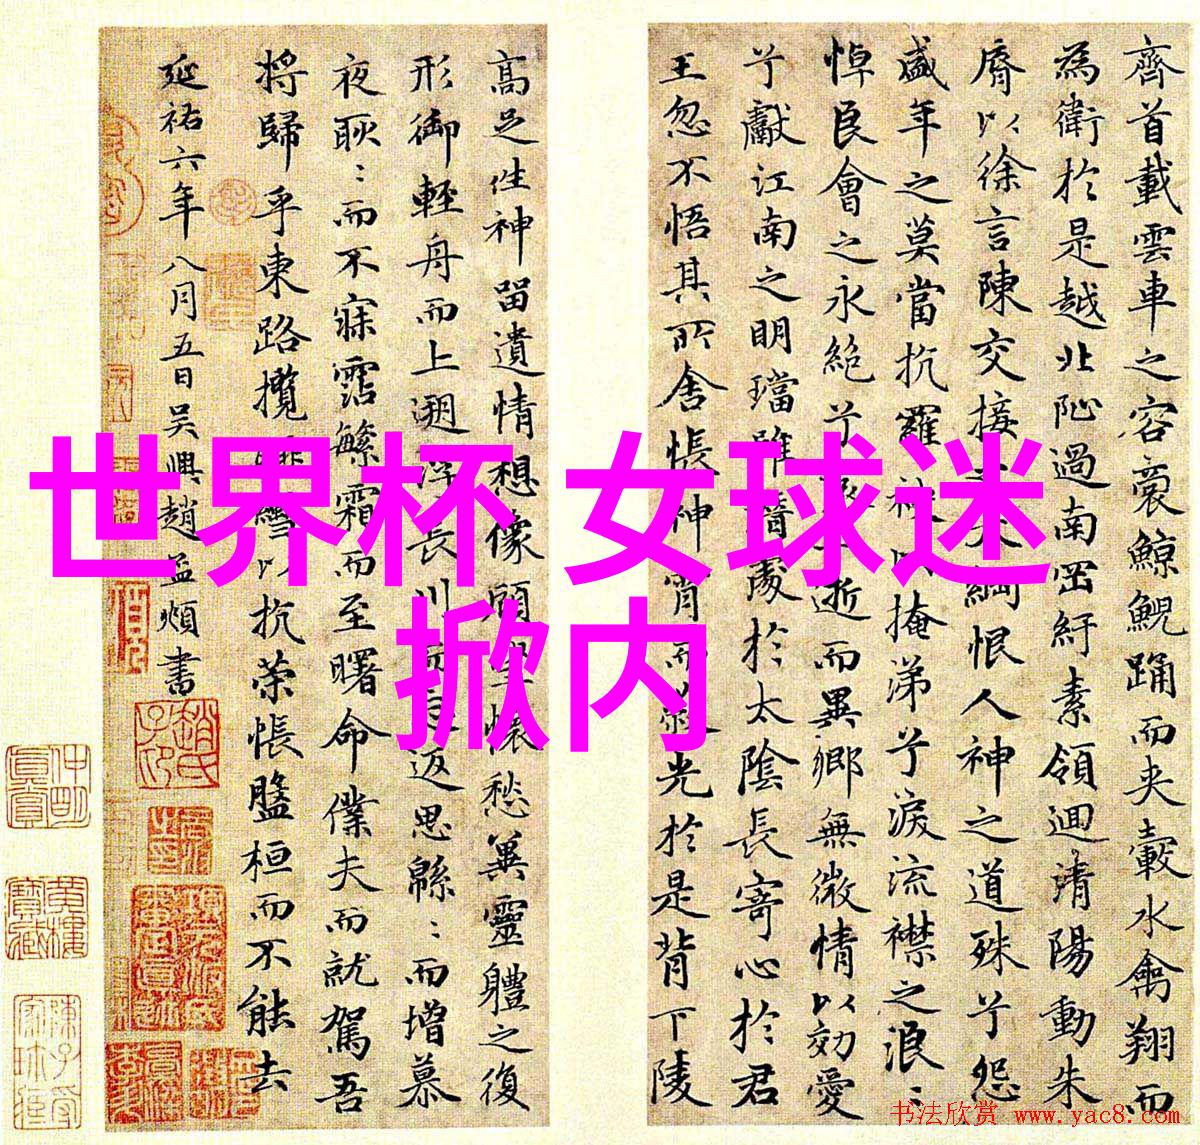 世界杯 女球迷
掀内
齊首載雲車之容裔鯨鯢踊而夾轂水禽翔而
為衛於是越北沚過南岡紆素領迴清陽動朱
脣以徐言陳交接之大綱恨人神之道殊兮怨
盛年之莫當抗羅袂以掩涕兮淚流襟之浪〻
悼良會之永絕兮哀一逝而異鄉無微情以効愛
兮獻江南之明璫雖潛處於太陰長寄心於君
王忽不悟其所舍悵神宵而蔽光於是背下陵
高足往神留遺情想像顧望懷愁冀靈體之復
形御輕舟而上遡浮長川而忘返思緜〻而增慕
夜耿〻而不寐霑繁霜而至曙命僕夫而就駕吾
將歸乎東路攬轡以抗策悵盤桓而不能去
延祐六年八月五日吳興趙孟頫書
书法欣赏 www.yac8.com